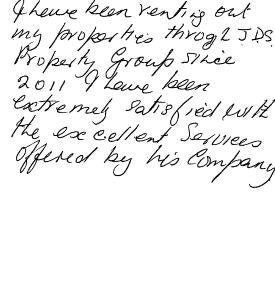 I have been renting out
my properties throgh J.D.S.
Property Group since
2011 I have been
extremely satisfied with
the excellent Services
offered by his Company